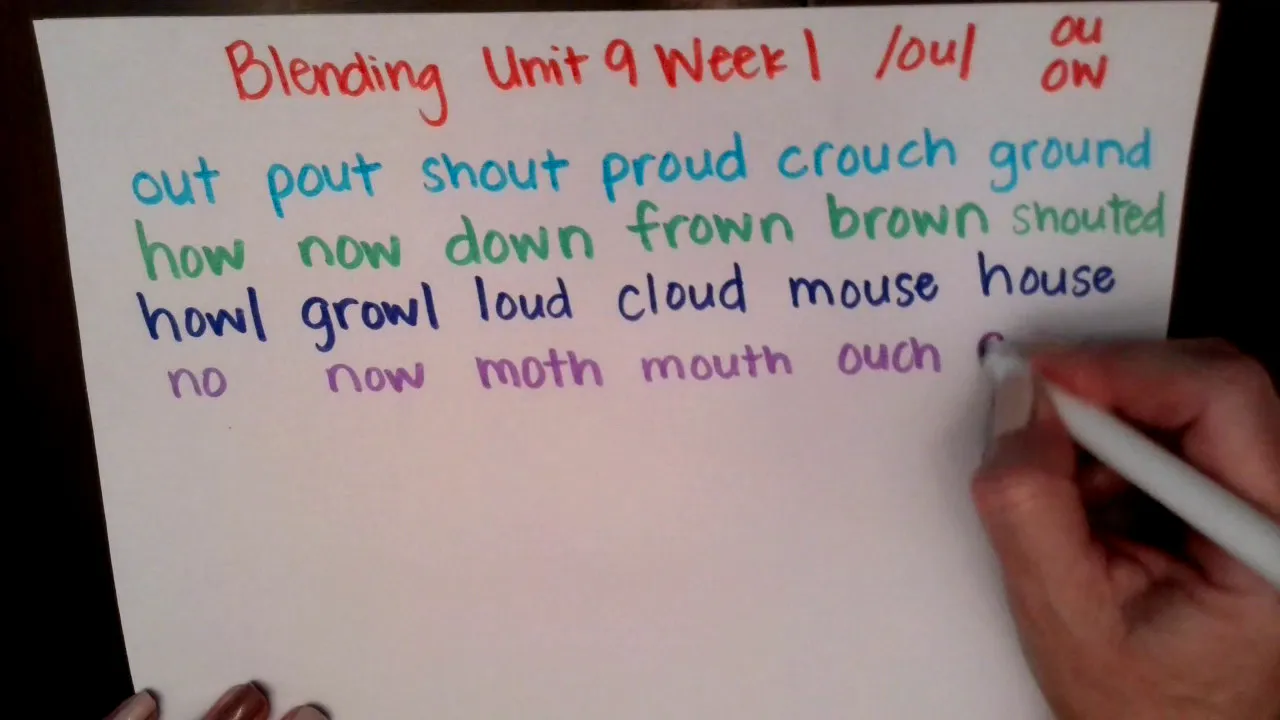 Blending Unit 9 Week 1 /ou/ ou
ow
out pout shout proud crouch ground
how now down frown brown shouted
howl growl loud cloud mouse house
no now moth mouth ouch